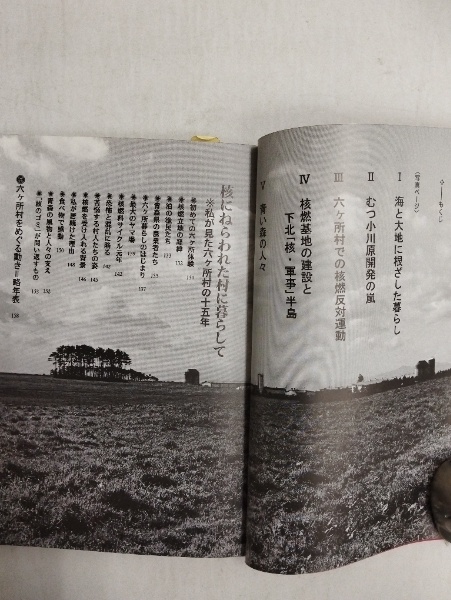 〈写真ページ〉
I 海と大地に根ざした暮らし
II むつ小川原開発の嵐
III 六ヶ所村での核燃反対運動
IV 核燃基地の建設と
下北「核・軍事」半島
V 青い森の人々
核にねらわれた村に暮らして
※私が見た六ヶ所村の十五年
※初めての六ヶ所体験
※核燃立地の経緯
※泊の漁民たち
※青森県の農業者たち
※六ヶ所暮らしのはじまり 137
※最大のヤマ場
※核燃料サイクル元年
※恐怖と混乱に陥る 142
※苦悩する村人たちの姿 145
※核燃を受け入れる背景 146
※私が居続けた理由 148
※食べ物で感動 150
※青森の風物と人々の支え
※「核のゴミ」が問い返すもの
六ヶ所村をめぐる動き=略年表 158